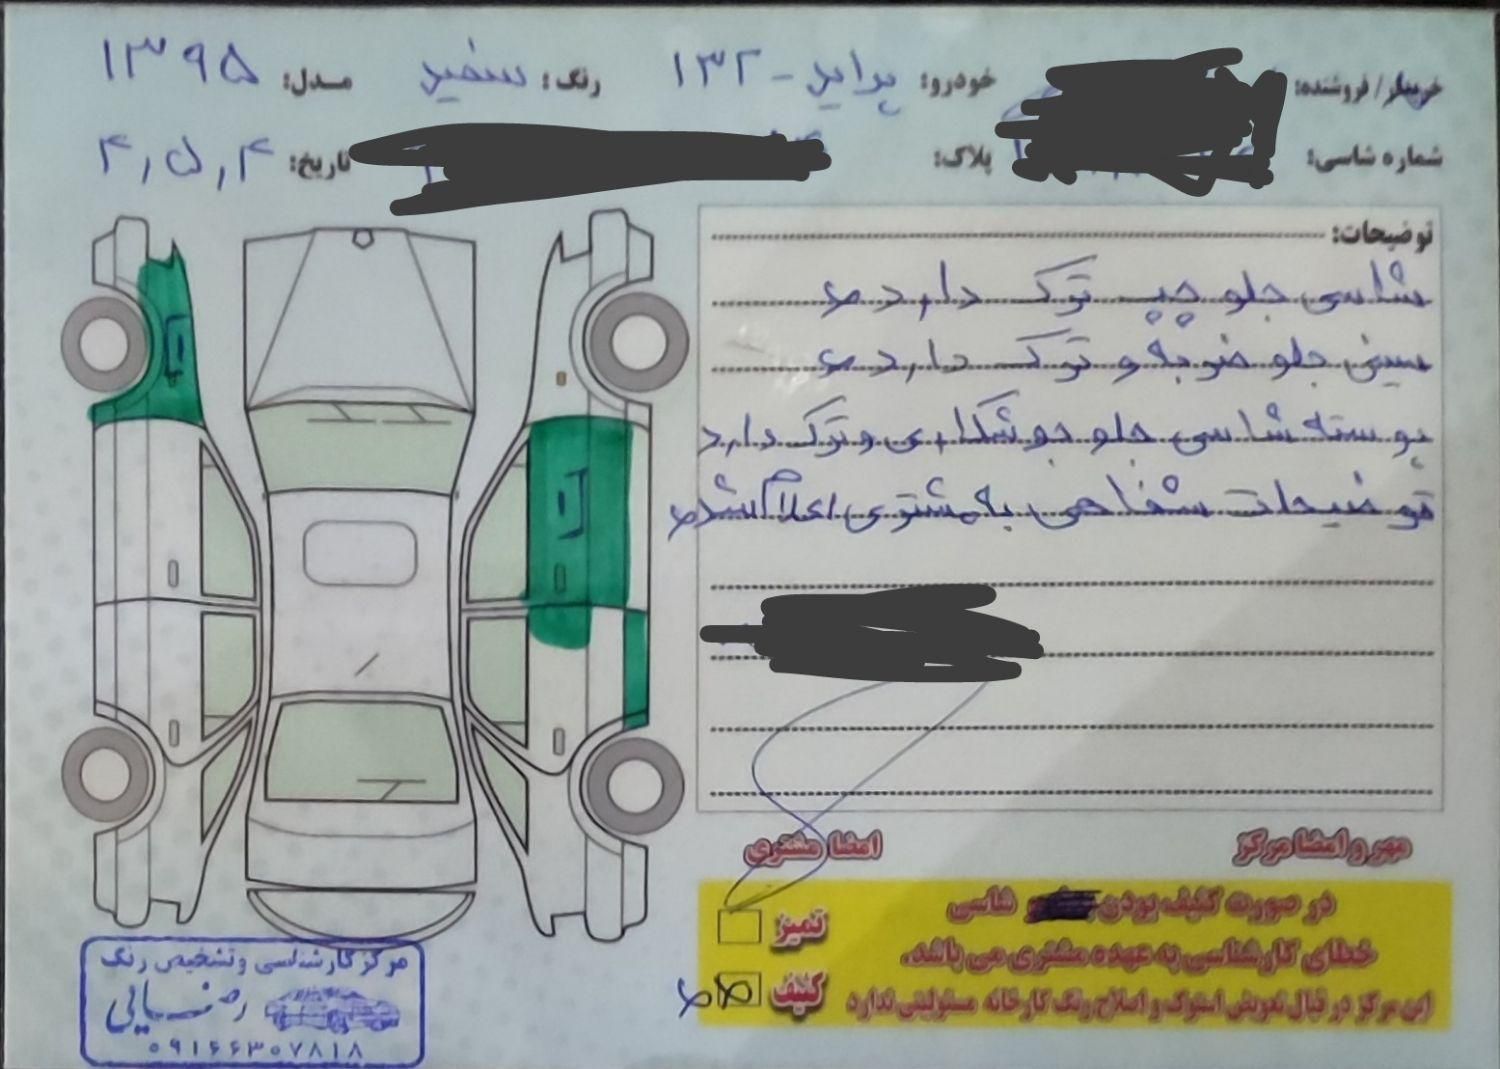 خریدار / فروشنده: خودرو: پراید - ۱۳۲ رنگ: سفید مدل: ۱۳۹۵
شماره شاسی: پلاک: تاریخ: ۴,۵,۴
توضیحات:
شاسی جلو چپ ترک دارد
سینی جلو ضربه و ترک دارد
پوسته شاسی جلو جوشکاری و ترک دارد
توضیحات شفاهی به مشتری اعلام شد
رنگ
رنگ
مهر و امضا مرکز امضا مشتری
در صورت کثیف بودن شاسی
خطای کارشناسی به عهده مشتری می باشد.
این مرکز در قبال تعویض استوک و اصلاح رنگ کارخانه مسئولیتی ندارد
تمیز
کثیف
مرکز کارشناسی و تشخیص رنگ
رضایی
۰۹۱۶۶۳۰۷۸۱۸